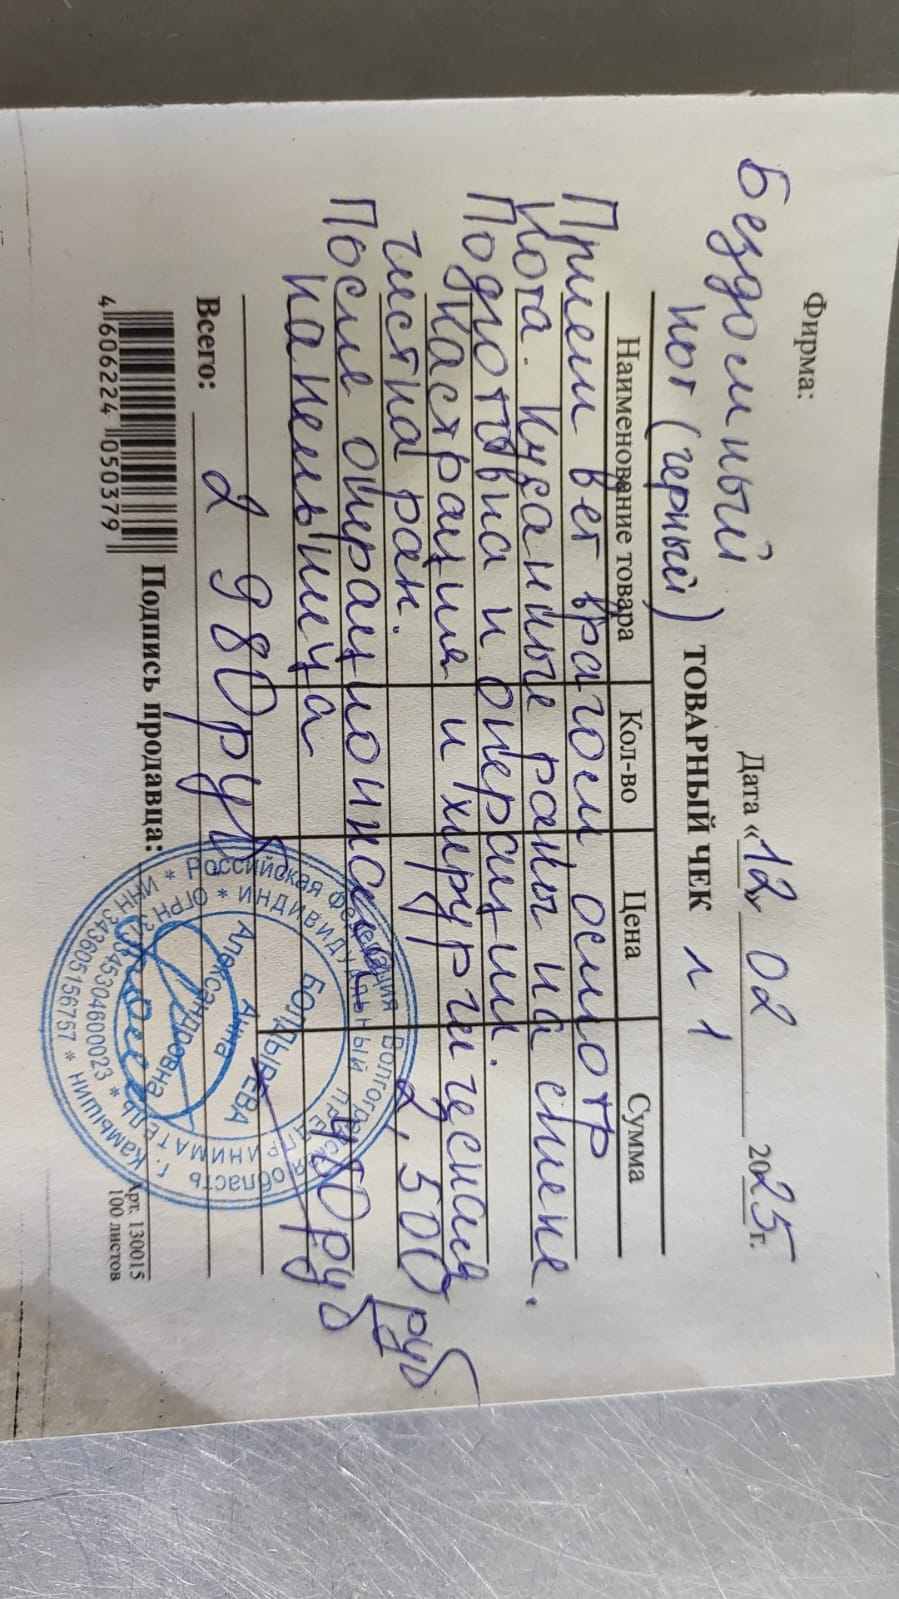 Фирма:
Бездомный
кот (черный)
Дата «12» 02 2025 г.
ТОВАРНЫЙ ЧЕК № 1
Наименование товара Кол-во Цена Сумма
Прием вет врагом осмотр
Кота. Кусанные раны на спине.
Подготовка и операции.
Кастрация и хирургическая
чистка ран. 2,500 руб
После операционная 480 руб
капельница
Всего: 2 980 руб
Подпись продавца:
4 606224 050379
Арт. 130015
100 листов
* Российская Федерация Волгоградская область г. Камышин *
ИНДИВИДУАЛЬНЫЙ ПРЕДПРИНИМАТЕЛЬ
* ИНН 343605156757 *
БОЛДЫРЕВА
Анна
Александровна